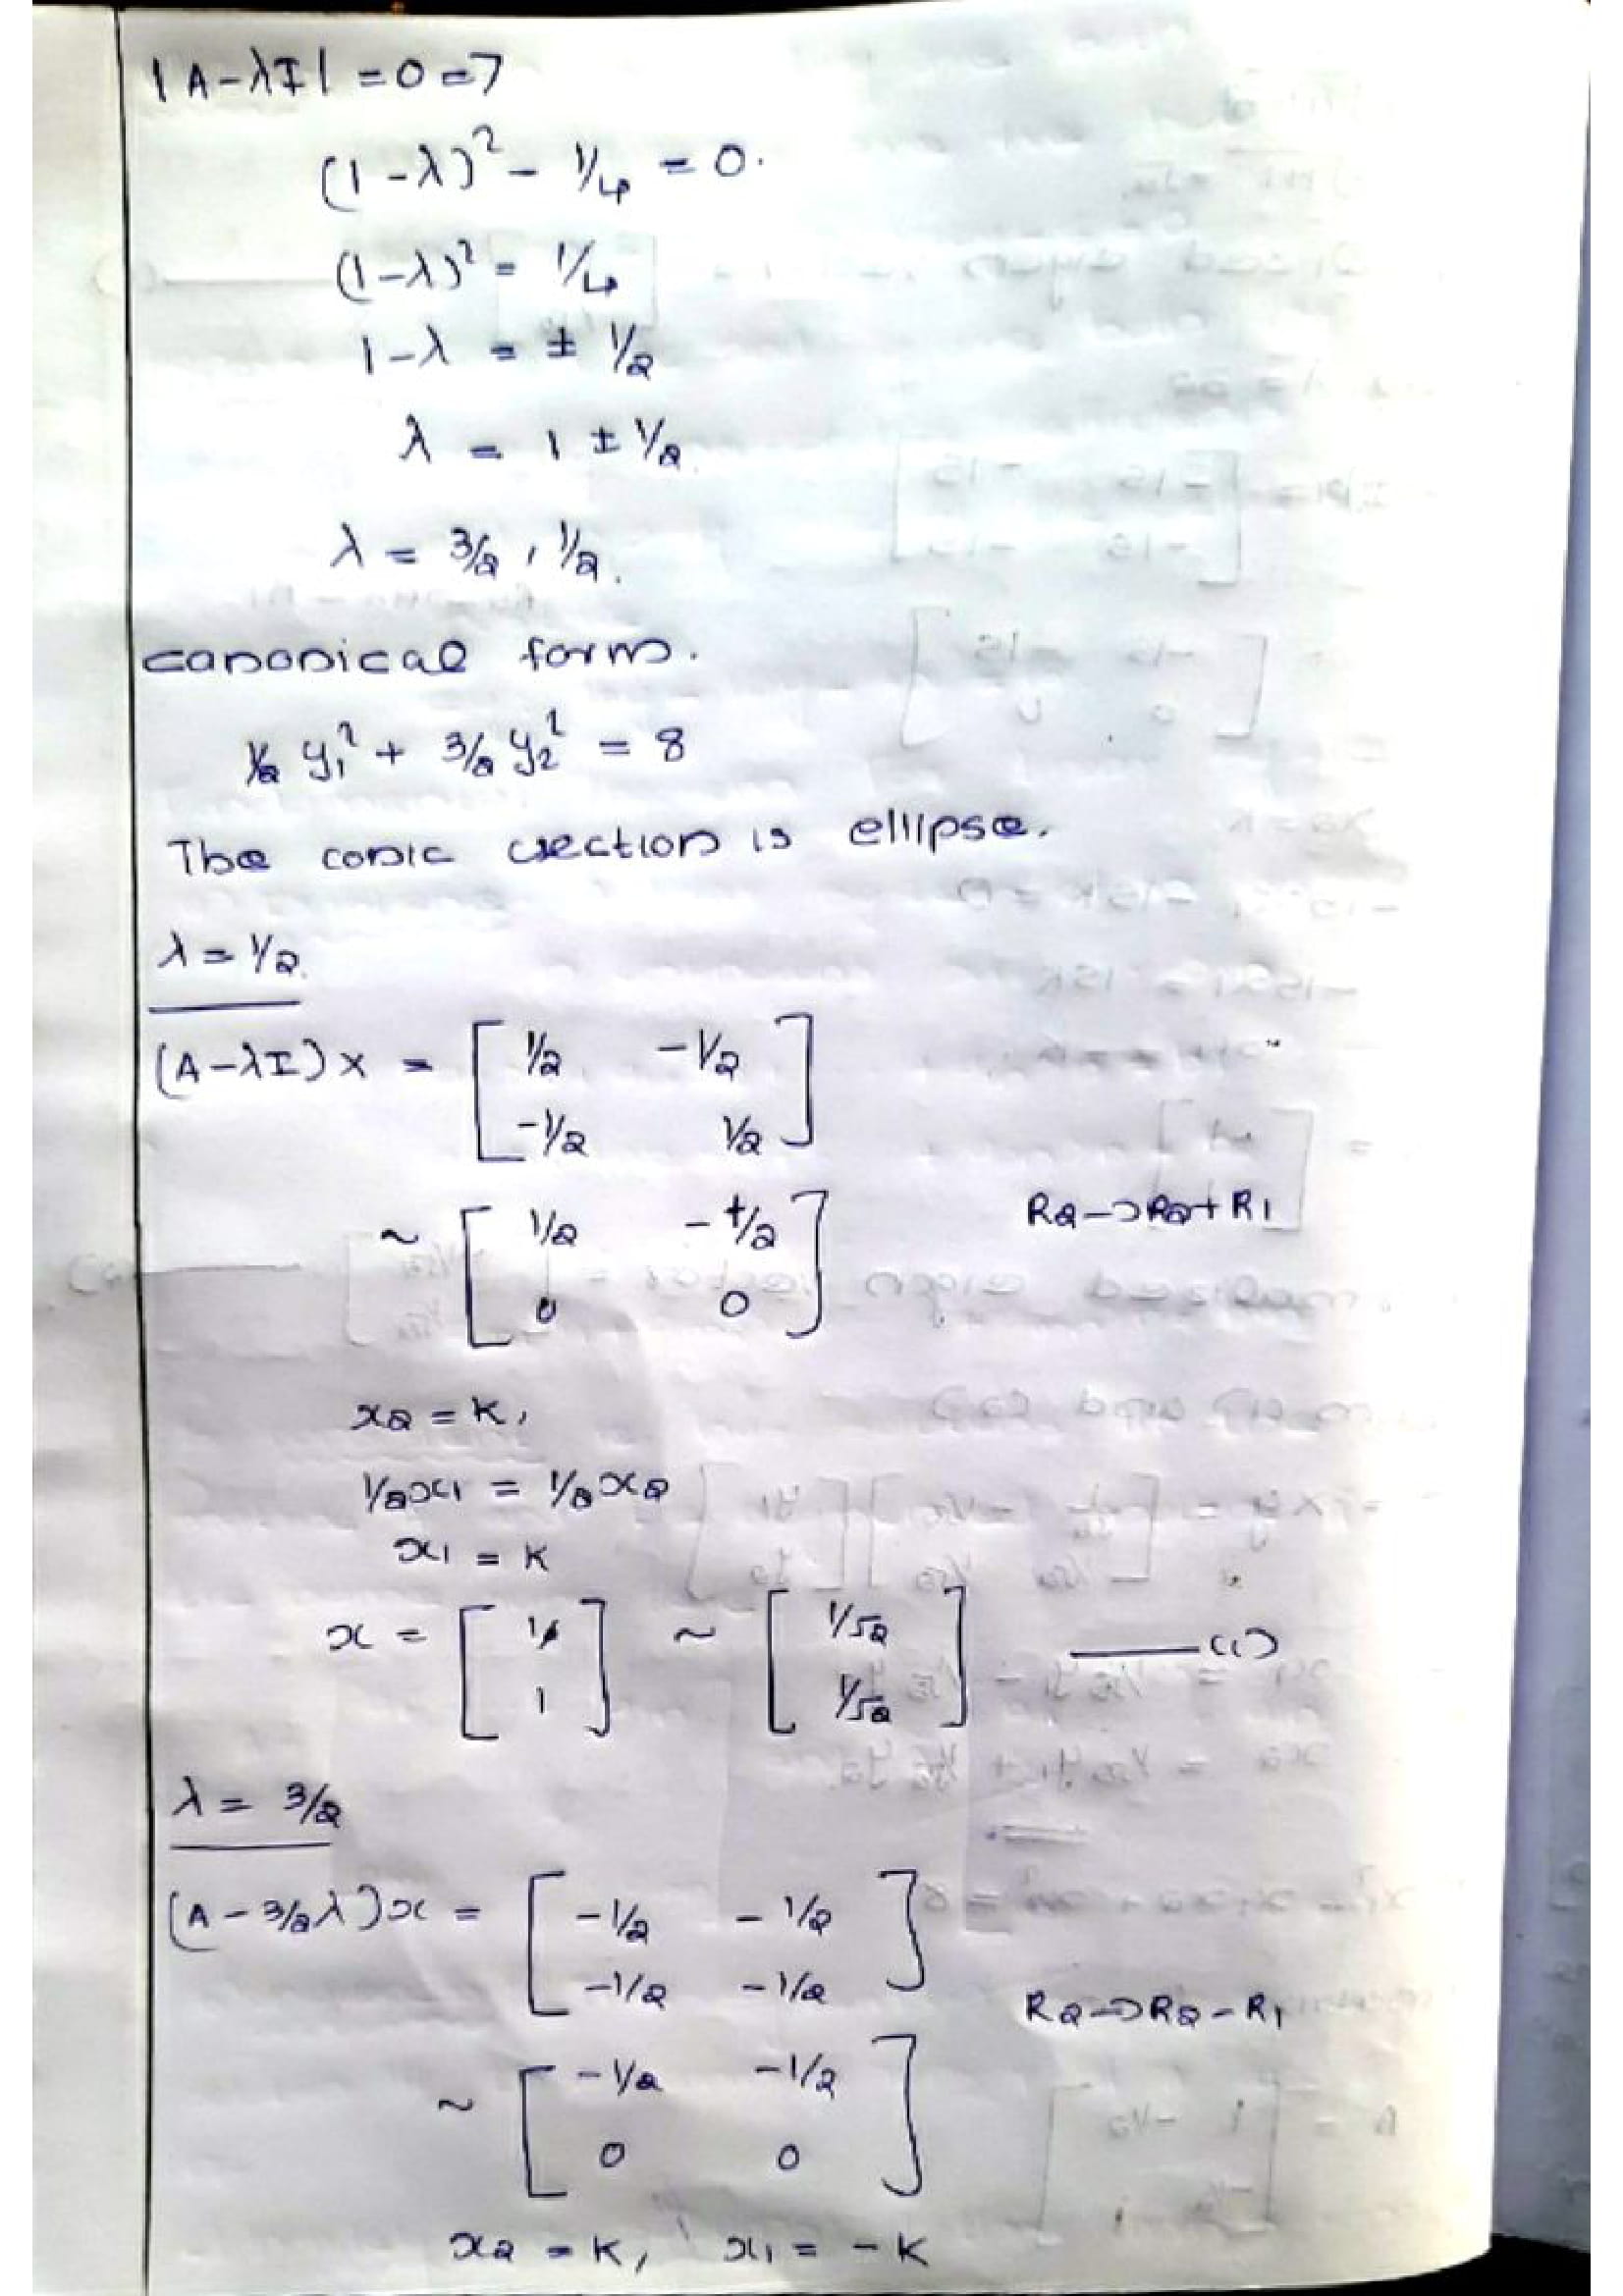 |A-λI| = 0 =>
(1-λ)² - 1/4 = 0.
(1-λ)² = 1/4
1-λ = ± 1/2
λ = 1 ± 1/2
λ = 3/2, 1/2.
canonical form.
1/2 y₁² + 3/2 y₂² = 8
The conic section is ellipse.
λ = 1/2
(A-λI)x = [ 1/2 -1/2
-1/2 1/2 ]
~ [ 1/2 -1/2 R2→R2+R1
0 0 ]
x2 = k,
1/2x1 = 1/2x2
x1 = k
x = [ 1 ~ [ 1/√2 ——(1)
1 ] 1/√2 ]
λ = 3/2
(A-3/2λ)x = [ -1/2 -1/2
-1/2 -1/2 ] R2→R2-R1
~ [ -1/2 -1/2
0 0 ]
x2 = k, x1 = -k